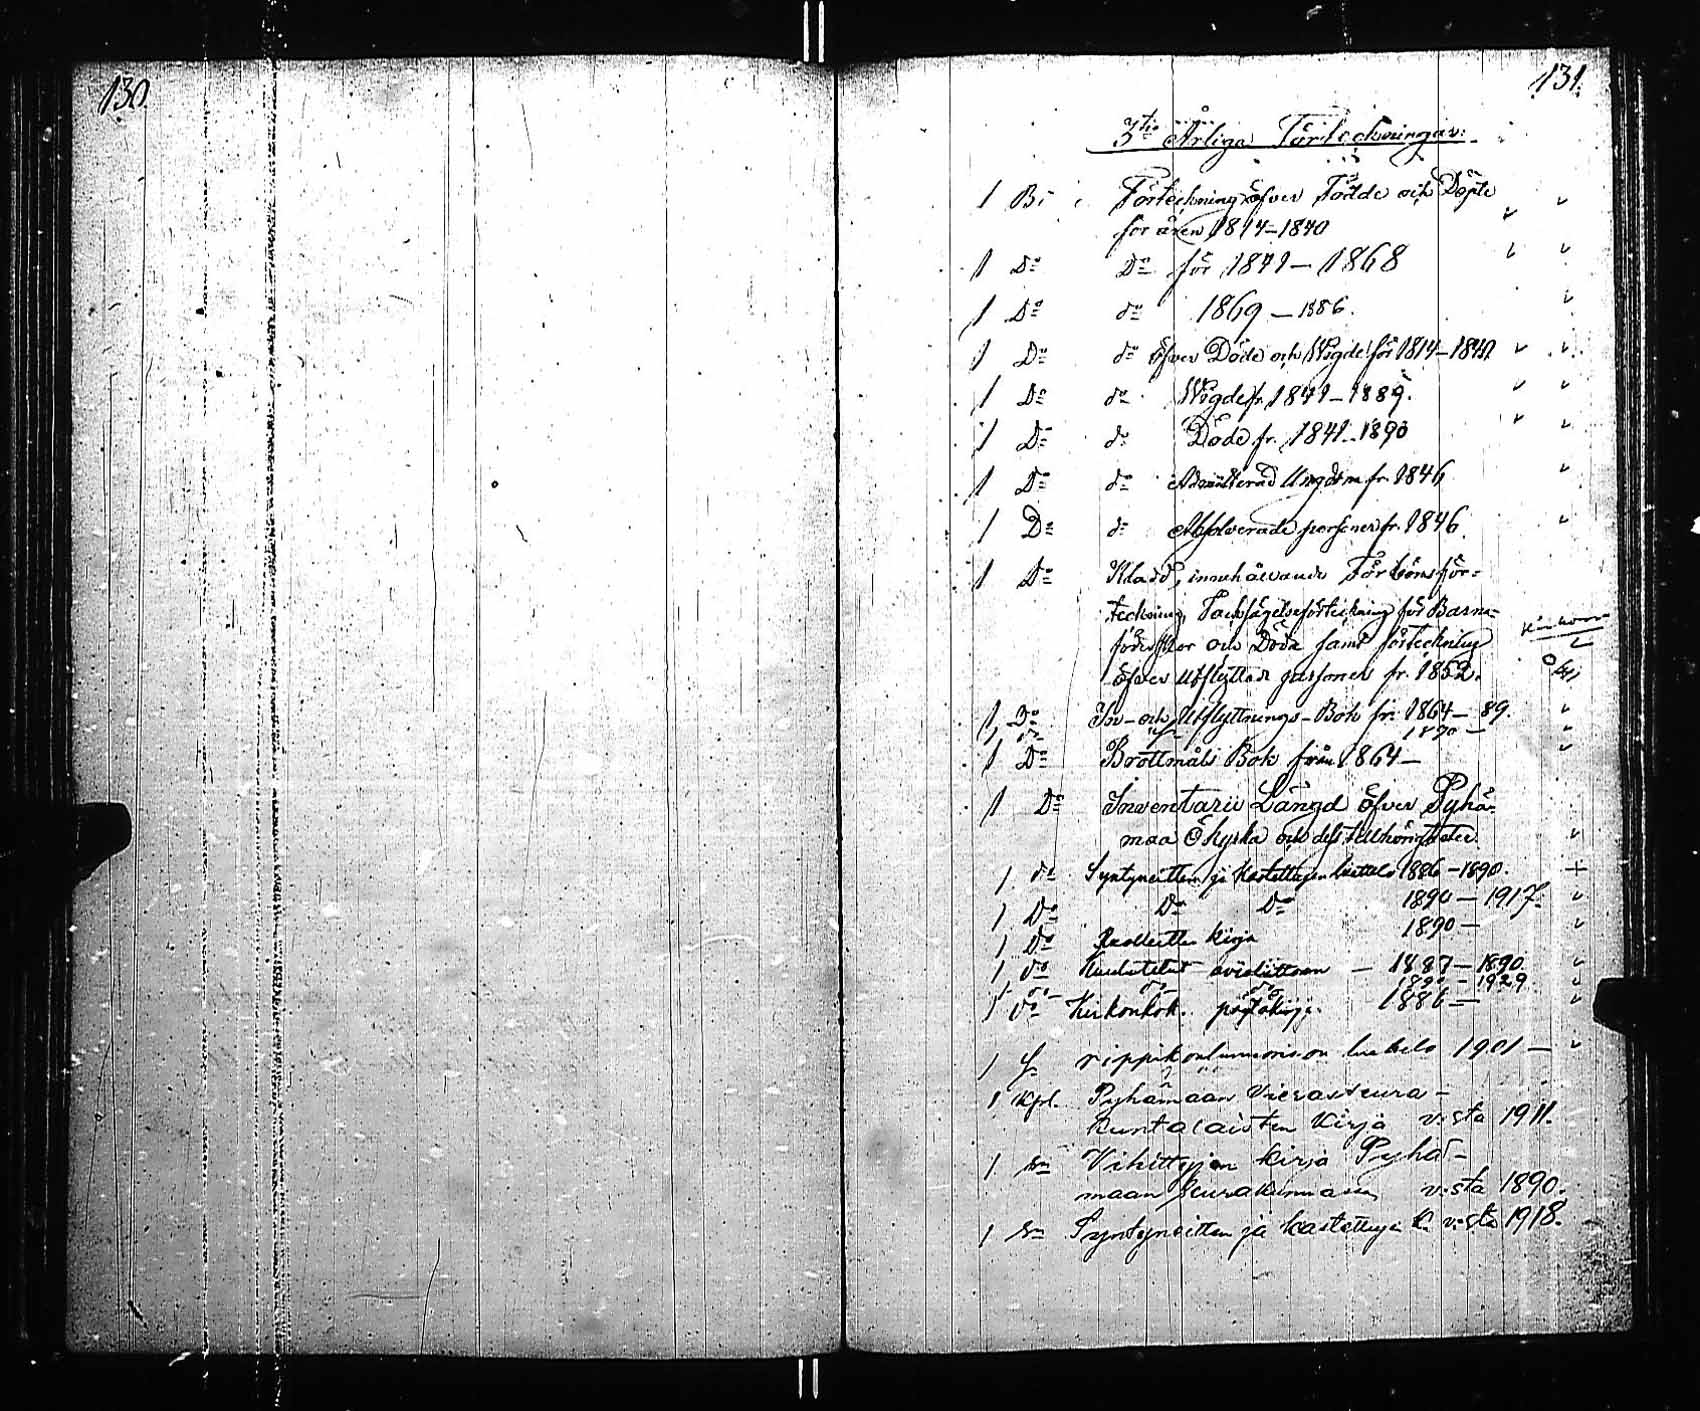 130
131.
3tio Årliga Förteckningar:
1 Bd Förteckning öfver Födde och Döpte
för åren 1814–1840
1 Do Do för 1841–1868
1 Do do 1869–1886.
1 Do do öfver Döde och Wigde för 1814–1841
1 Do do Wigde fr. 1841–1889.
1 Do do Döde fr. 1841–1890
1 Do do Admitterad Ungdom fr. 1846
1 Do do Absolverade personer fr. 1846.
1 Do Kladd, innehållande Förbönsför-
teckning, Tacksägelseförteckning för Barns-
föderskor och Döda samt förteckning
öfver Utflyttade personer fr. 1852.
1 Do In- och Utflyttnings-Bok fr. 1864–89.
1 do 1890 –
1 Do Brottmåls Bok från 1864 –
1 Do Inventarii Längd öfver Pyhä-
maa Kyrka och dess tillhörigheter.
1 do Syntyneitten ja Kastettujen luettelo 1886–1890.
1 Do Do Do 1890–1917.
1 Do Kuolleitten kirja 1890 –
1 do Kuulutetut avioliittoon – 1887–1890
1 do do do 1890–1929
1 do Kirkonkok. pöytäkirja. 1886 –
1 rippikoulunuorison luettelo 1901 –
1 kpl. Pyhämaan vierasseura-
kuntalaisten kirja v:sta 1911.
1 Vihittyjen kirja Pyhä-
maan seurakunnassa v:sta 1890.
1 Syntyneitten ja kastettujen k. v:sta 1918.